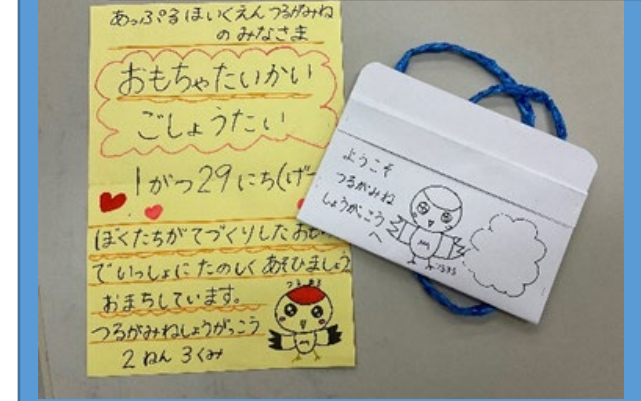 あっぷるほいくえんつるがみね
のみなさま
おもちゃたいかい
ごしょうたい
1がつ29にち(げ
ぼくたちがてづくりしたおも
でいっしょにたのしくあそびましょう
おまちしています。
つるまる
つるがみねしょうがっこう
2ねん3くみ
ようこそ
つるがみね
しょうがっこう
へ
つるまる